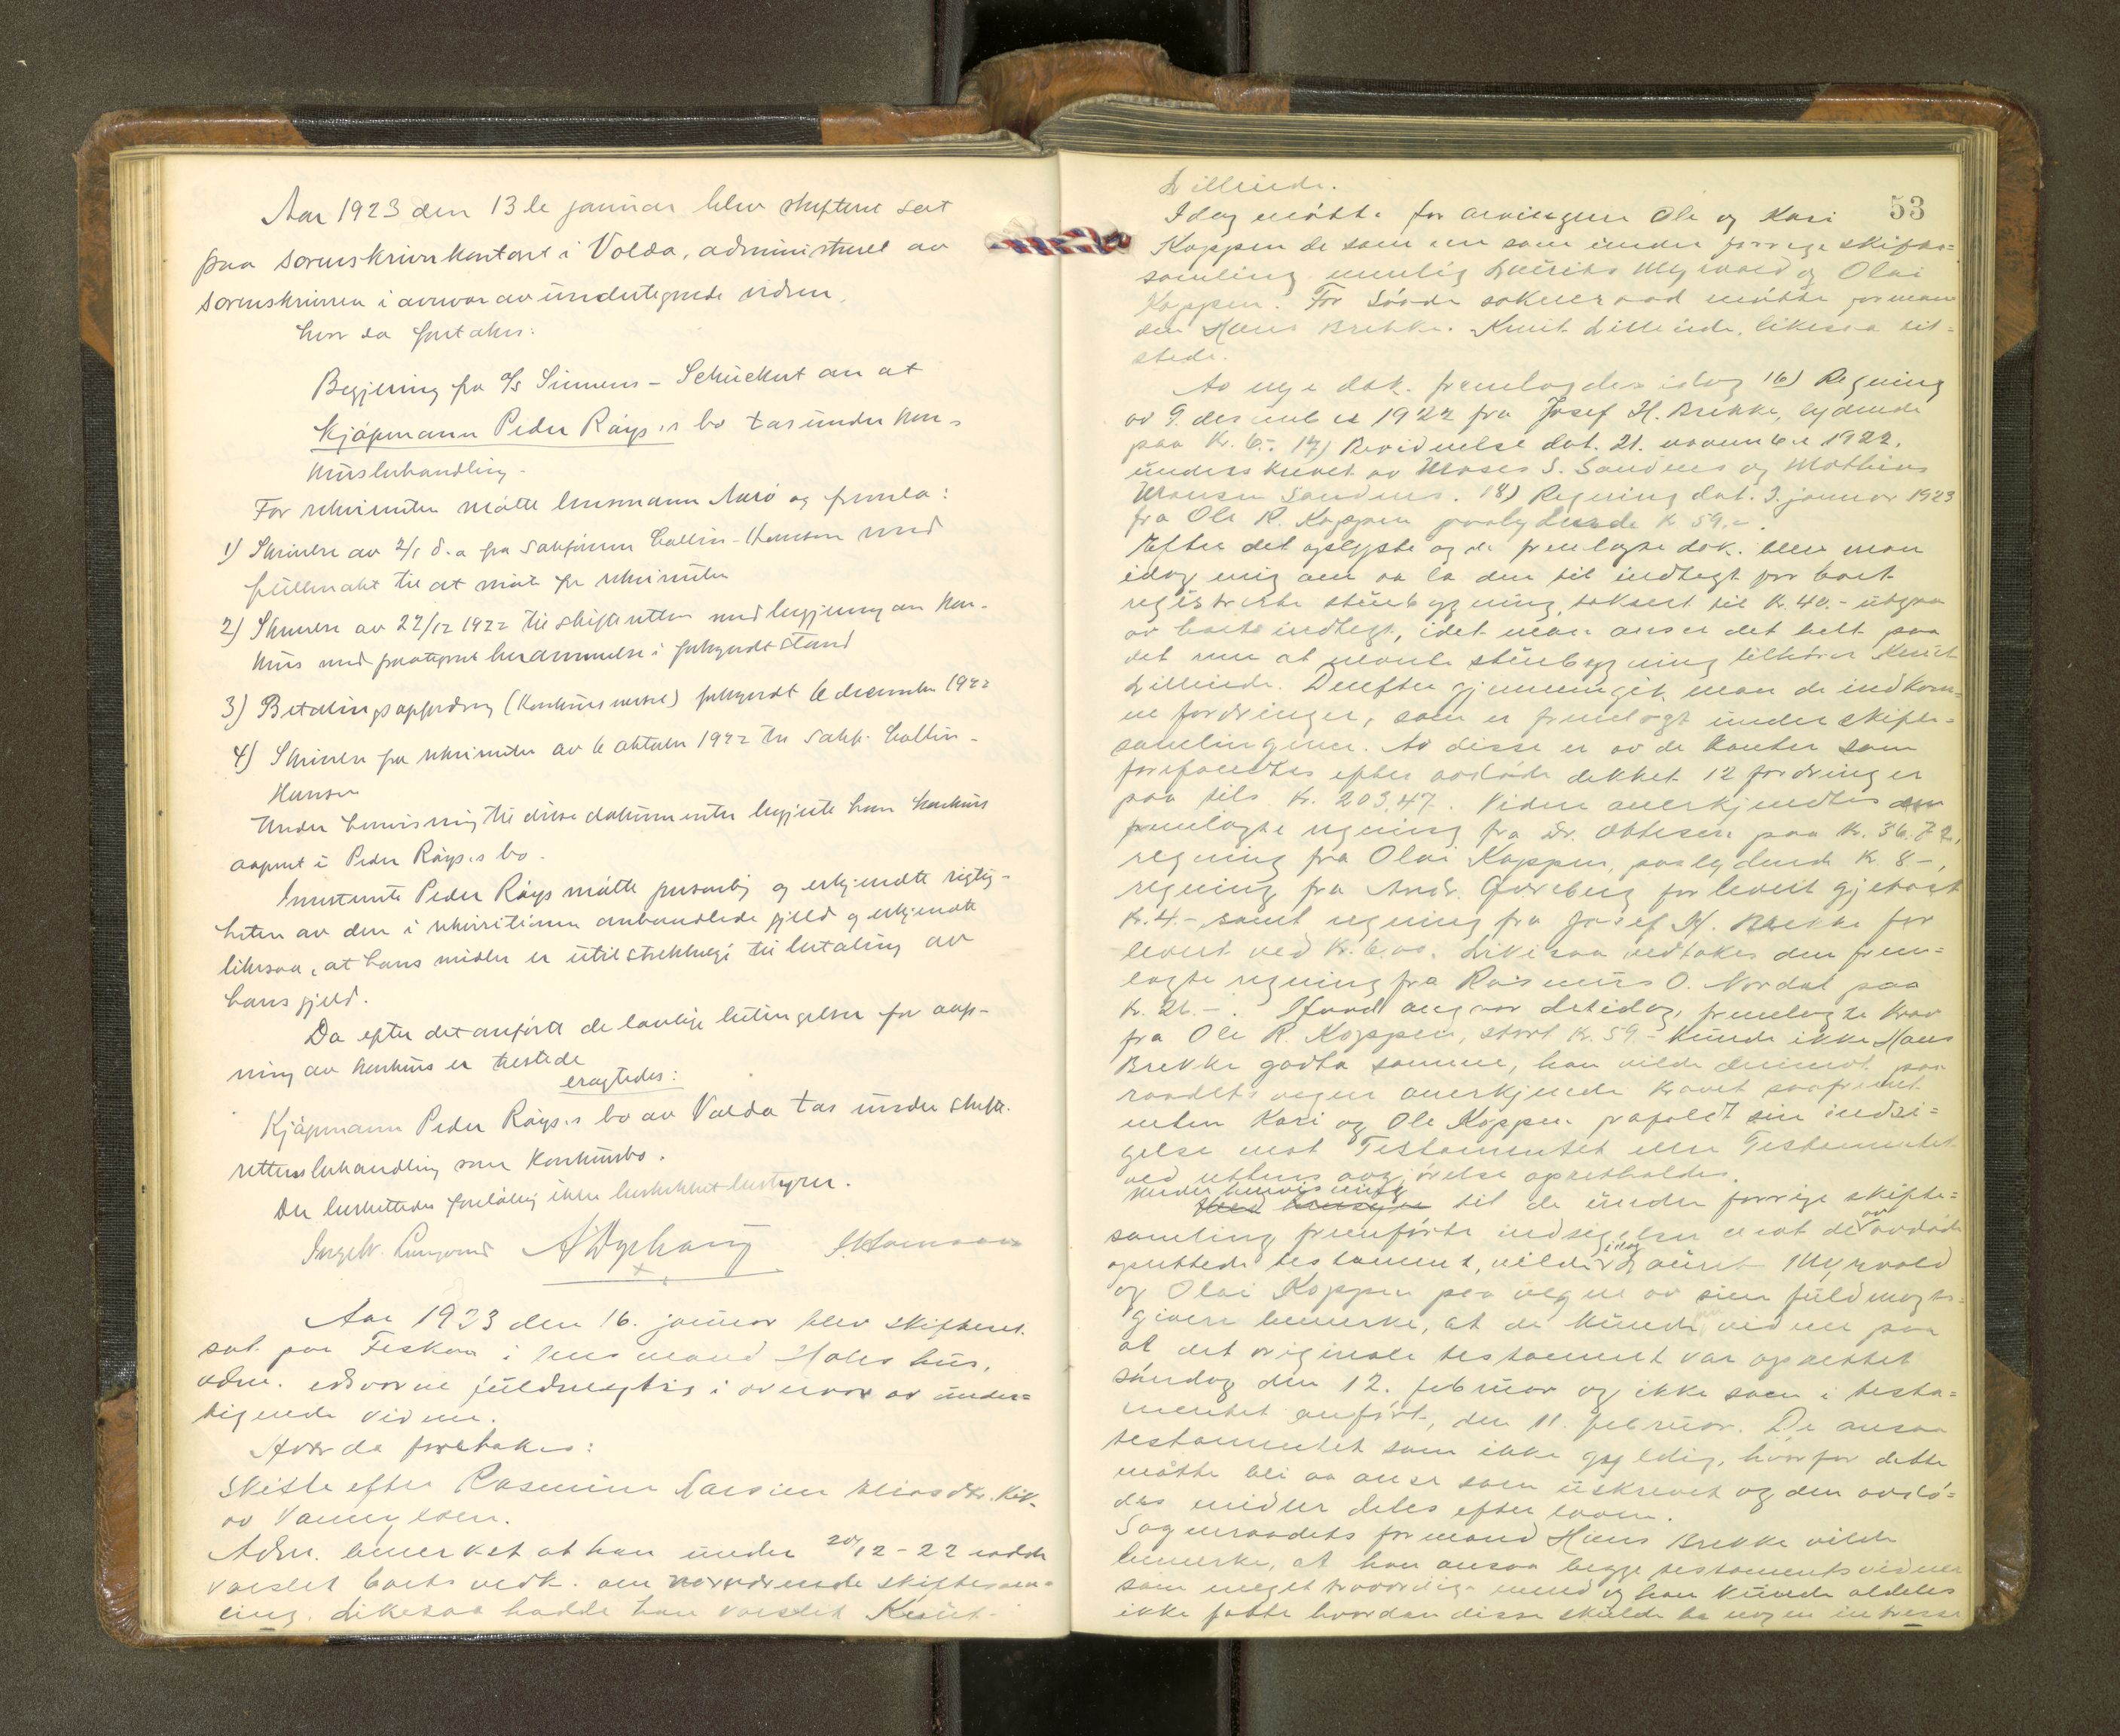 Aar 1923 den 13 de januar blev skifteret sat
paa sorenskriverkontoret i Volda, administreret av
sorenskriveren i overvær av undertegnede vidner,
hvor da foretokes:
Begjæring fra A/S Siemens-Schuckert om at
Kjøpmann Peder Røys.s bo tas under kon-
kursbehandling.
For rekvirenten møtte lensmann Aarø og fremla:
1) Skrivelse av 2/1 d.a fra sakfører Collin-Hansen med
fullmakt til at møte for rekvirenten
2) Skrivelse av 22/12 1922 til skifteretten med begjæring om kon-
kurs med paategnet berammelse i forkyndt stand
3) Betalingsopfordring (Konkursvarsel) forkyndt 6 december 1922
4) Skrivelse fra rekvirenten av 6 oktober 1922 til sakf. Collin-
Hansen
Under henvisning til disse dokumenter begjærte han konkurs
aapnet i Peder Røys.s bo.
Innstevnte Peder Røys møtte personlig og erkjendte rigtig-
heten av den i rekvisitionen omhandlede gjæld og erkjendte
likesaa, at hans midler er utilstrekkelige til betaling av
hans gjæld.
Da efter det anførte de lovlige betingelser for aap-
ning av konkurs er tilstede
eragtedes:
Kjøpmann Peder Røys.s bo av Volda tas under skifte-
rettens behandling som konkursbo.
Der beskikkedes foreløbig ikke bestyrer.
Aar 1923 den 16. januar blev skifteret
sat paa Fiskaa i lensmand Holes hus,
adm. edsvorne fuldmegtig i overvær av under=
tegnede vidner.
Hvor da foretokes:
Skifte efter Rasmine Larsine Eliasdtr. Kil-
av Vannylven.
Adm. bemerket at han under 20/12-22 hadde
varslet boets vedk. om nærværende skiftesam=
ling. Likesaa hadde han varslet Knut
53
Lillieide.
Idag møtte for arvingerne Ole og Kari
Koppen de samme som under forrige skifte=
samling nemlig Laurits Myrvold og Olai
Koppen. For Søvde sokneraad møtte forman
den Hans Brekke. Knut Lillieide, likesaa til=
stede.
Av nye dok. fremlagdes idag 16) Regning
av 9. desember 1922 fra Josef H. Brekke, lydende
paa Kr. 6.-. 17) Bevidnelse dat. 21. november 1922.
underskrevet av Moses S. Sandnes og Mathias
Monsen Sandnes. 18) Regning dat. 3. januar 1923
fra Ole R. Koppen paalydende kr 59.-.
Efter det oplyste og de fremlagte dok. blev man
idag enig om aa la den til indtegt for boet
registrerte stuebygning, taksert til Kr. 40.- utgaa
av boets indtegt, idet man anser det helt paa
det rene at nevnte stuebygning tilhører Knut
Lillieide. Derefter gjennemgik man de indkom=
ne fordringer, som er fremlagt under skifte=
samlingerne. Av disse er av de konter som
forefandtes efter avdøde dekket 12 fordringer
paa tils. Kr. 203.47. Videre anerkjendtes den
fremlagte regning fra Dr. Ottesen paa Kr. 36.72,
regning fra Olai Koppen, paalydende Kr. 8-,
regning fra Andr. Gjæreberg for levert gjetost
Kr. 4.- samt regning fra Josef H. Brekke for
levert ved Kr. 6.00. Likesaa vedtokes den frem=
lagte regning fra Rasmus O. Nordal paa
Kr. 26.-. Ifund angaar det idag, fremlagte krav
fra Ole R. Koppen, stort Kr. 59.- kunde ikke Hans
Brekke godta samme, han vilde derimot paa
raadets vegne anerkjende kravet saafremt
enten Kari og Ole Koppen frafaldt sin indsi=
gelse mot Testamentet eller Testamentet
ved rettens avgjørelse opretholdes.
Under henvisning
til de under forrige skifte=
samling fremførte indsigelser mot de av avdøde
oprettede testament, vilde idag Laurit Myrvold
og Olai Koppen paa vegne av sine fuldmagts=
givere bemerke, at de kunde vidne paa
at det originale testament var oprettet
søndag den 12. februar og ikke som i testa=
mentet anført, den 11. februar. De ansaa
testamentet som ikke gyldig, hvorfor dette
maatte bli aa anse som uskrevet og den avdø=
des midler deles efter loven.
Sogneraadets formand Hans Brekke vilde
bemerke, at han ansaa begge testamentsvidner
som meget troværdige mend og han kunde aldeles
ikke fatte hvordan disse skulde ha nogen interesse